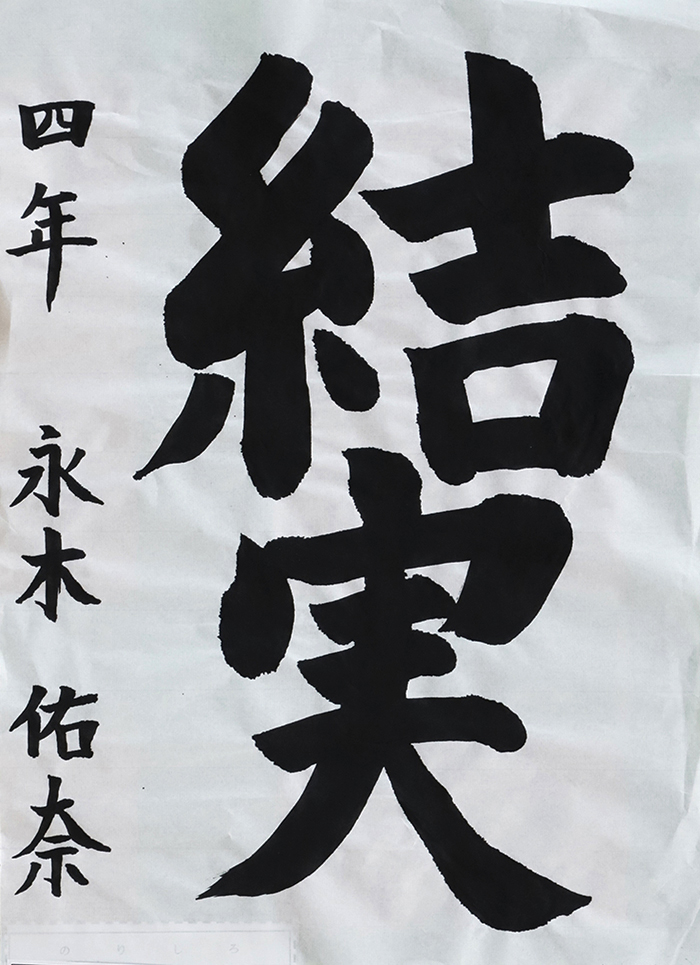 結実
四年 永木 佑奈
のりしろ